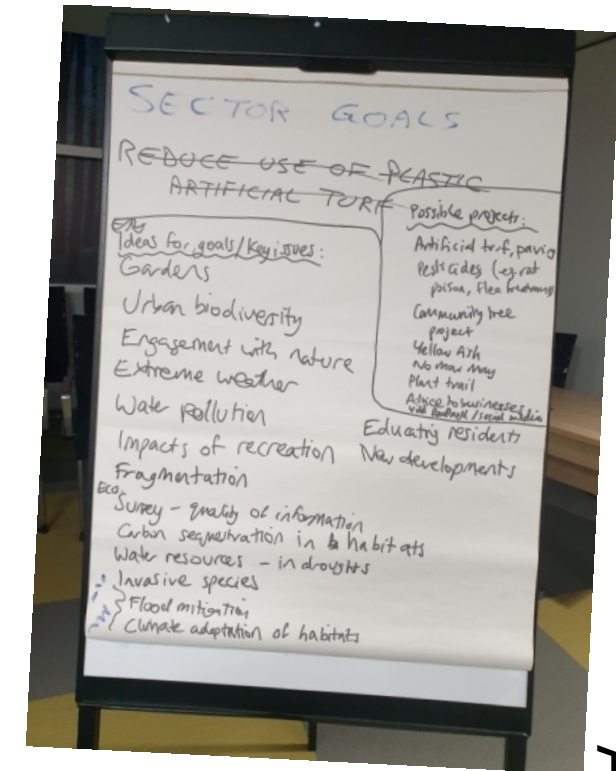 SECTOR GOALS
REDUCE USE OF PLASTIC
ARTIFICIAL TURF
Ideas for goals/key issues:
Gardens
Urban biodiversity
Engagement with nature
Extreme weather
Water pollution
Impacts of recreation
Fragmentation
Eco
Survey - quality of information
Carbon sequestration in habitats
Water resources - in droughts
Invasive species
Flood mitigation
Climate adaptation of habitats
Possible projects:
Artificial turf, paving
Pesticides (eg. rat
poison, flea treatments
Community tree
project
Yellow Ash
No mow may
Plant trail
Advice to businesses
social media
Educating residents
New developments